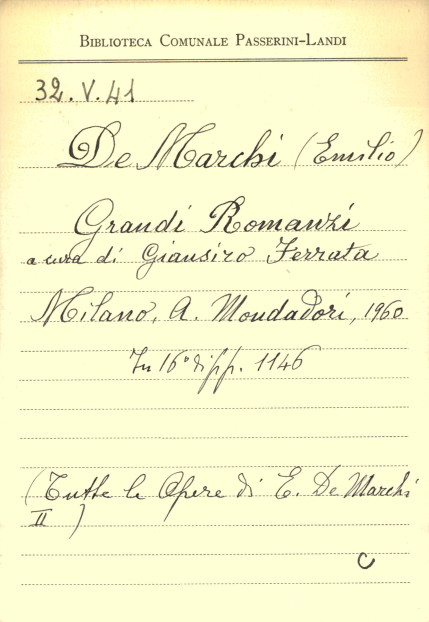 BIBLIOTECA COMUNALE PASSERINI-LANDI
32. V. 41
De Marchi (Emilio)
Grandi Romanzi
a cura di Giansiro Ferrata
Milano, A. Mondadori, 1960
In 16° di pp. 1146
(Tutte le Opere di E. De Marchi
II )
C